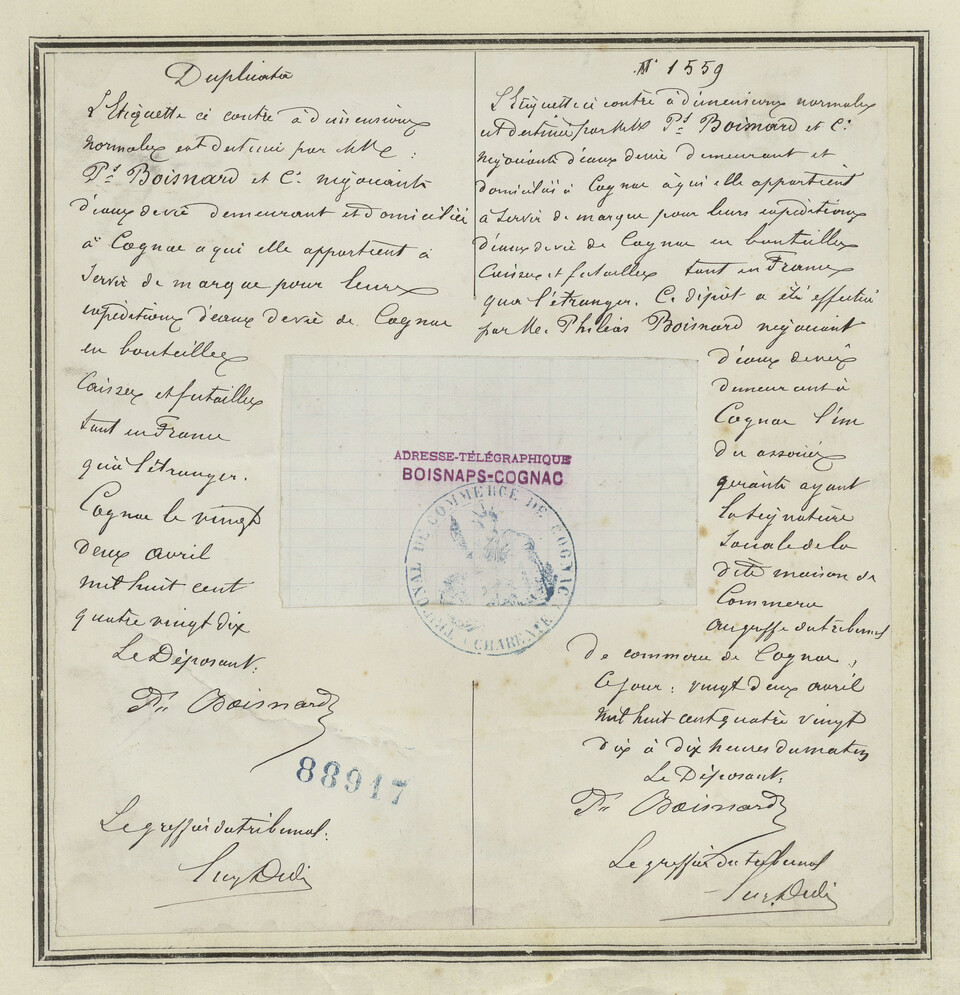 Duplicata
L'Etiquette ci contre à dimensions
normales est destinée par MM.
Ps Boisnard et Cie négociants
d'eaux de vie demeurant et domiciliés
à Cognac a qui elle appartient à
servir de marque pour leurs
expéditions d'eaux de vie de Cognac
en bouteilles
Caisses et futailles
tant en France
qu'à l'étranger.
Cognac le vingt
deux avril
mil huit cent
quatre vingt dix
Le Déposant:
Ps Boisnard
88917
Le greffier du tribunal:
N° 1559
L'Etiquette ci contre à dimensions normales
est destinée par MM. Ps Boisnard et Cie
négociants d'eaux de vie demeurant et
domiciliés à Cognac à qui elle appartient
à servir de marque pour leurs expéditions
d'eaux de vie de Cognac en bouteilles
Caisses et futailles tant en France
qu'à l'étranger. Ce dépôt a été effectué
par Mr. Philéas Boisnard négociant
d'eaux de vie
demeurant à
Cognac l'un
des associés
gérants ayant
la signature
sociale de la
dite maison de
Commerce
au greffe du tribunal
de commerce de Cognac,
Ce jour: vingt deux avril
mil huit cent quatre vingt
dix à dix heures du matin
Le Déposant:
Ps Boisnard
Le greffier du tribunal
ADRESSE-TÉLÉGRAPHIQUE
BOISNAPS-COGNAC
TRIBUNAL DE COMMERCE DE COGNAC
CHARENTE